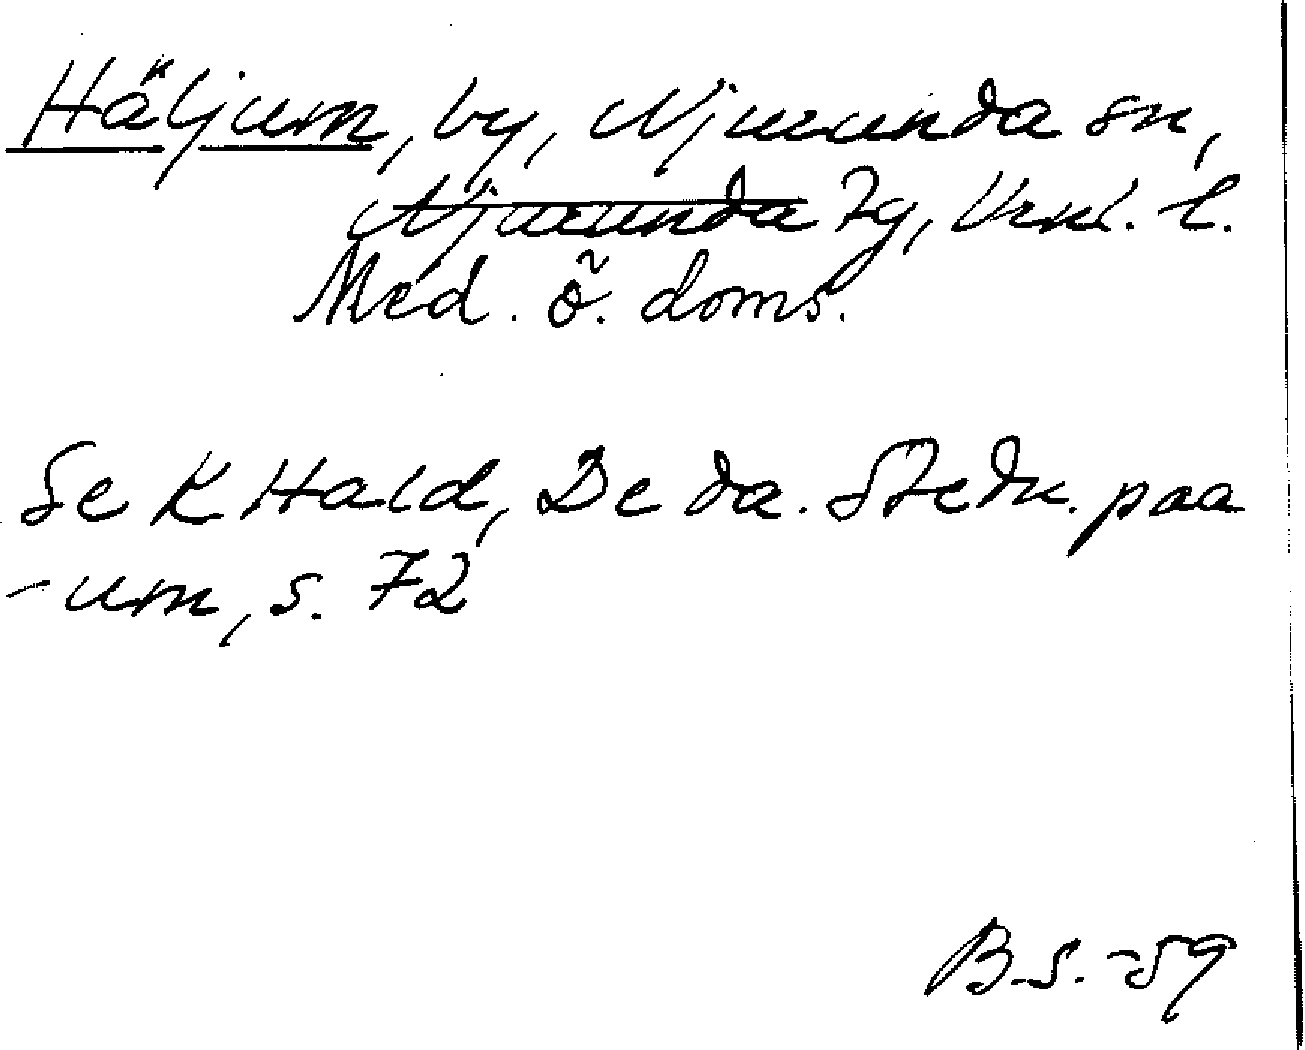 Häljum, by, Njurunda sn,
Njurunda tg, Vnl. l.
Med. ö. doms.
Se K Hald, De da. Stedn. paa
-um, s. 72
B.S. -59